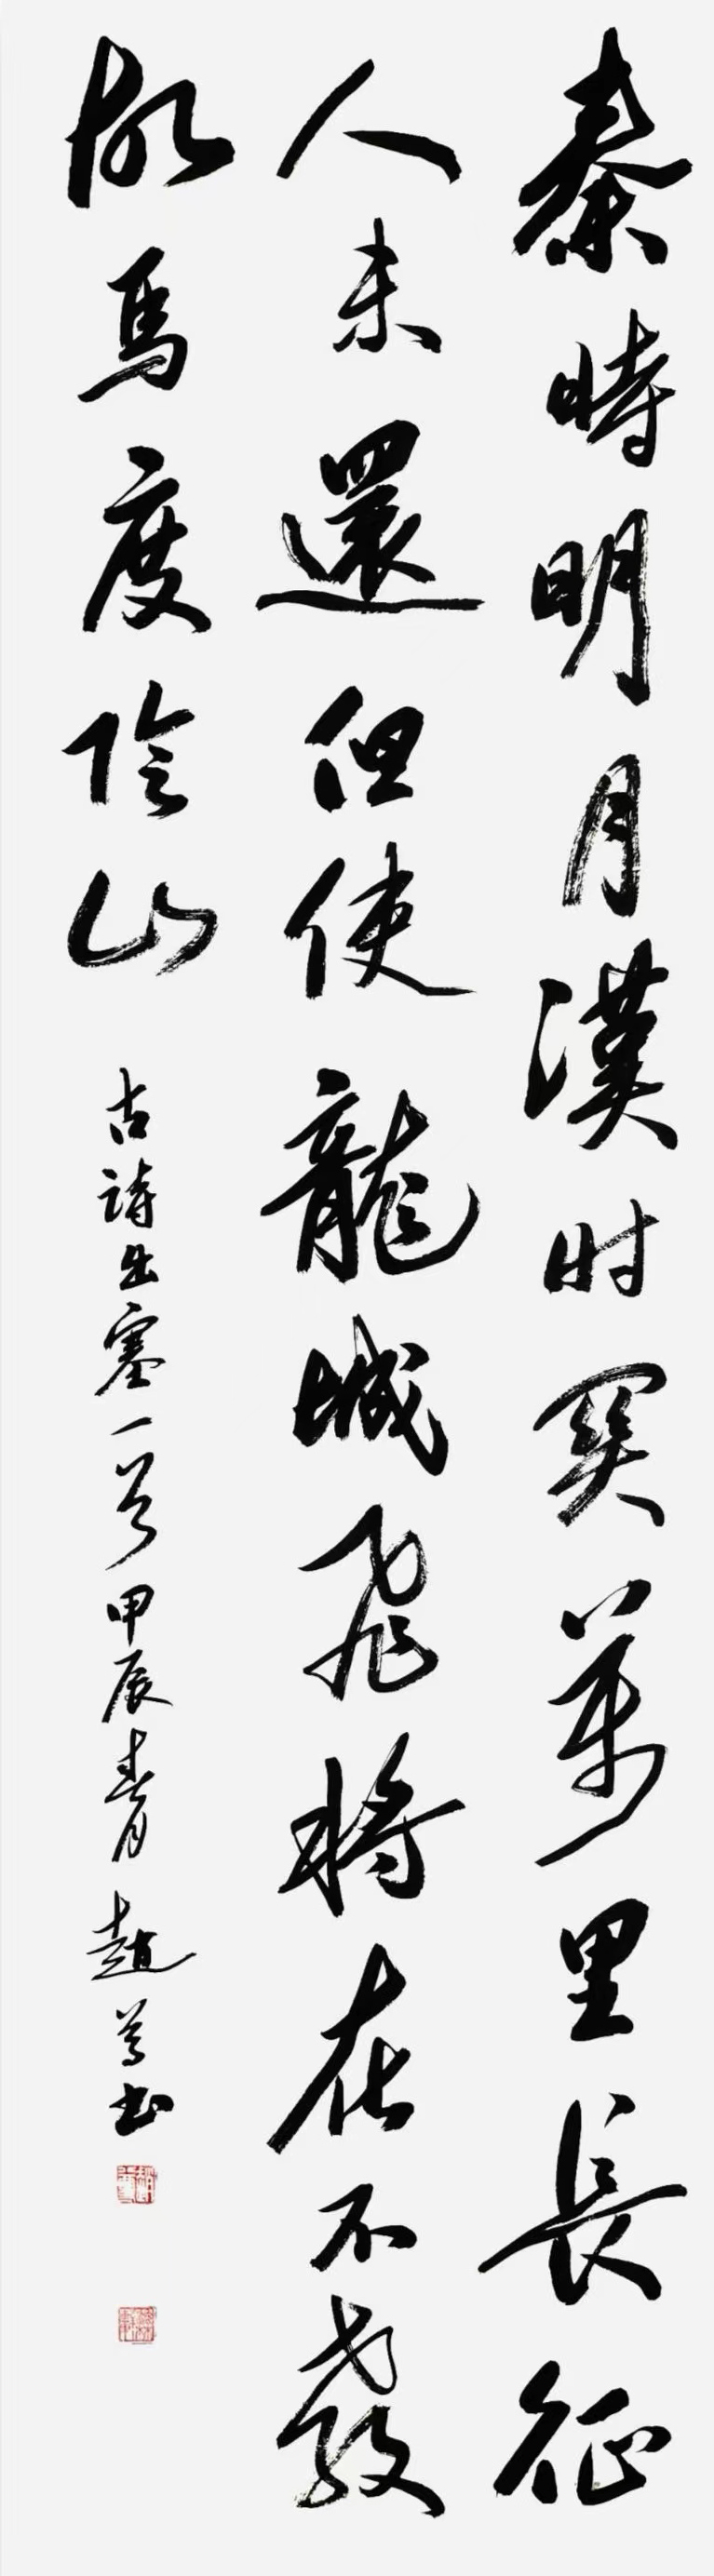 秦時明月漢时関萬里長征
人未還但使龍城飛將在不教
胡馬度陰山
古詩出塞一首甲辰青月趙書